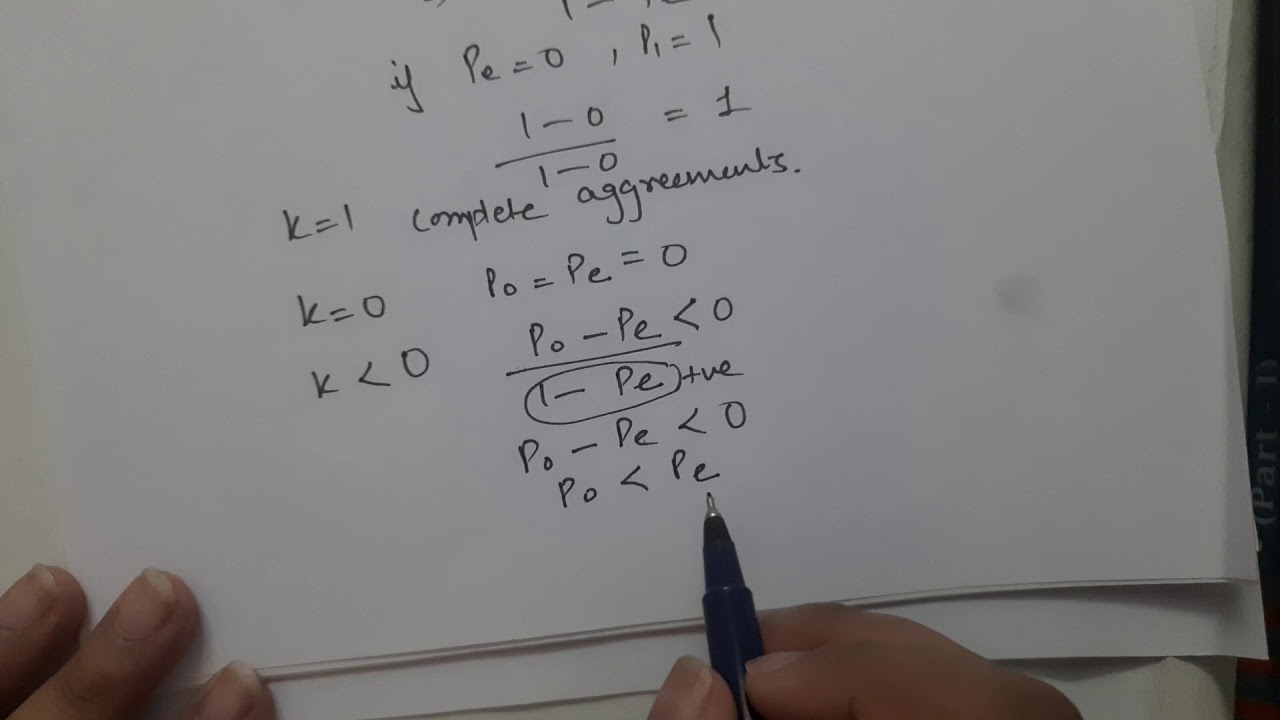 if Pe = 0 , P1 = 1
1 - 0 = 1
1 - 0
k = 1 complete aggreements.
k = 0 Po = Pe = 0
k < 0 Po - Pe < 0
1 - Pe +ve
Po - Pe < 0
Po < Pe
(Part - I)